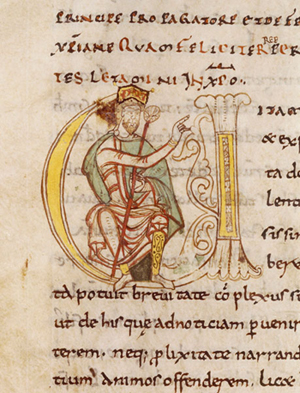 PRINCIPE PROPAGATORE ET DEFE
XPIANE QVAM FELICITER
TES LETAMINI IN XPO.
V ITA ET
& exp
ta do
lenti
sissim
tā potuit brevitate cōplexus s
ut de his quę ad noticiam p venir
terem. neq; plixitate narrand
tium animos offenderem. lice